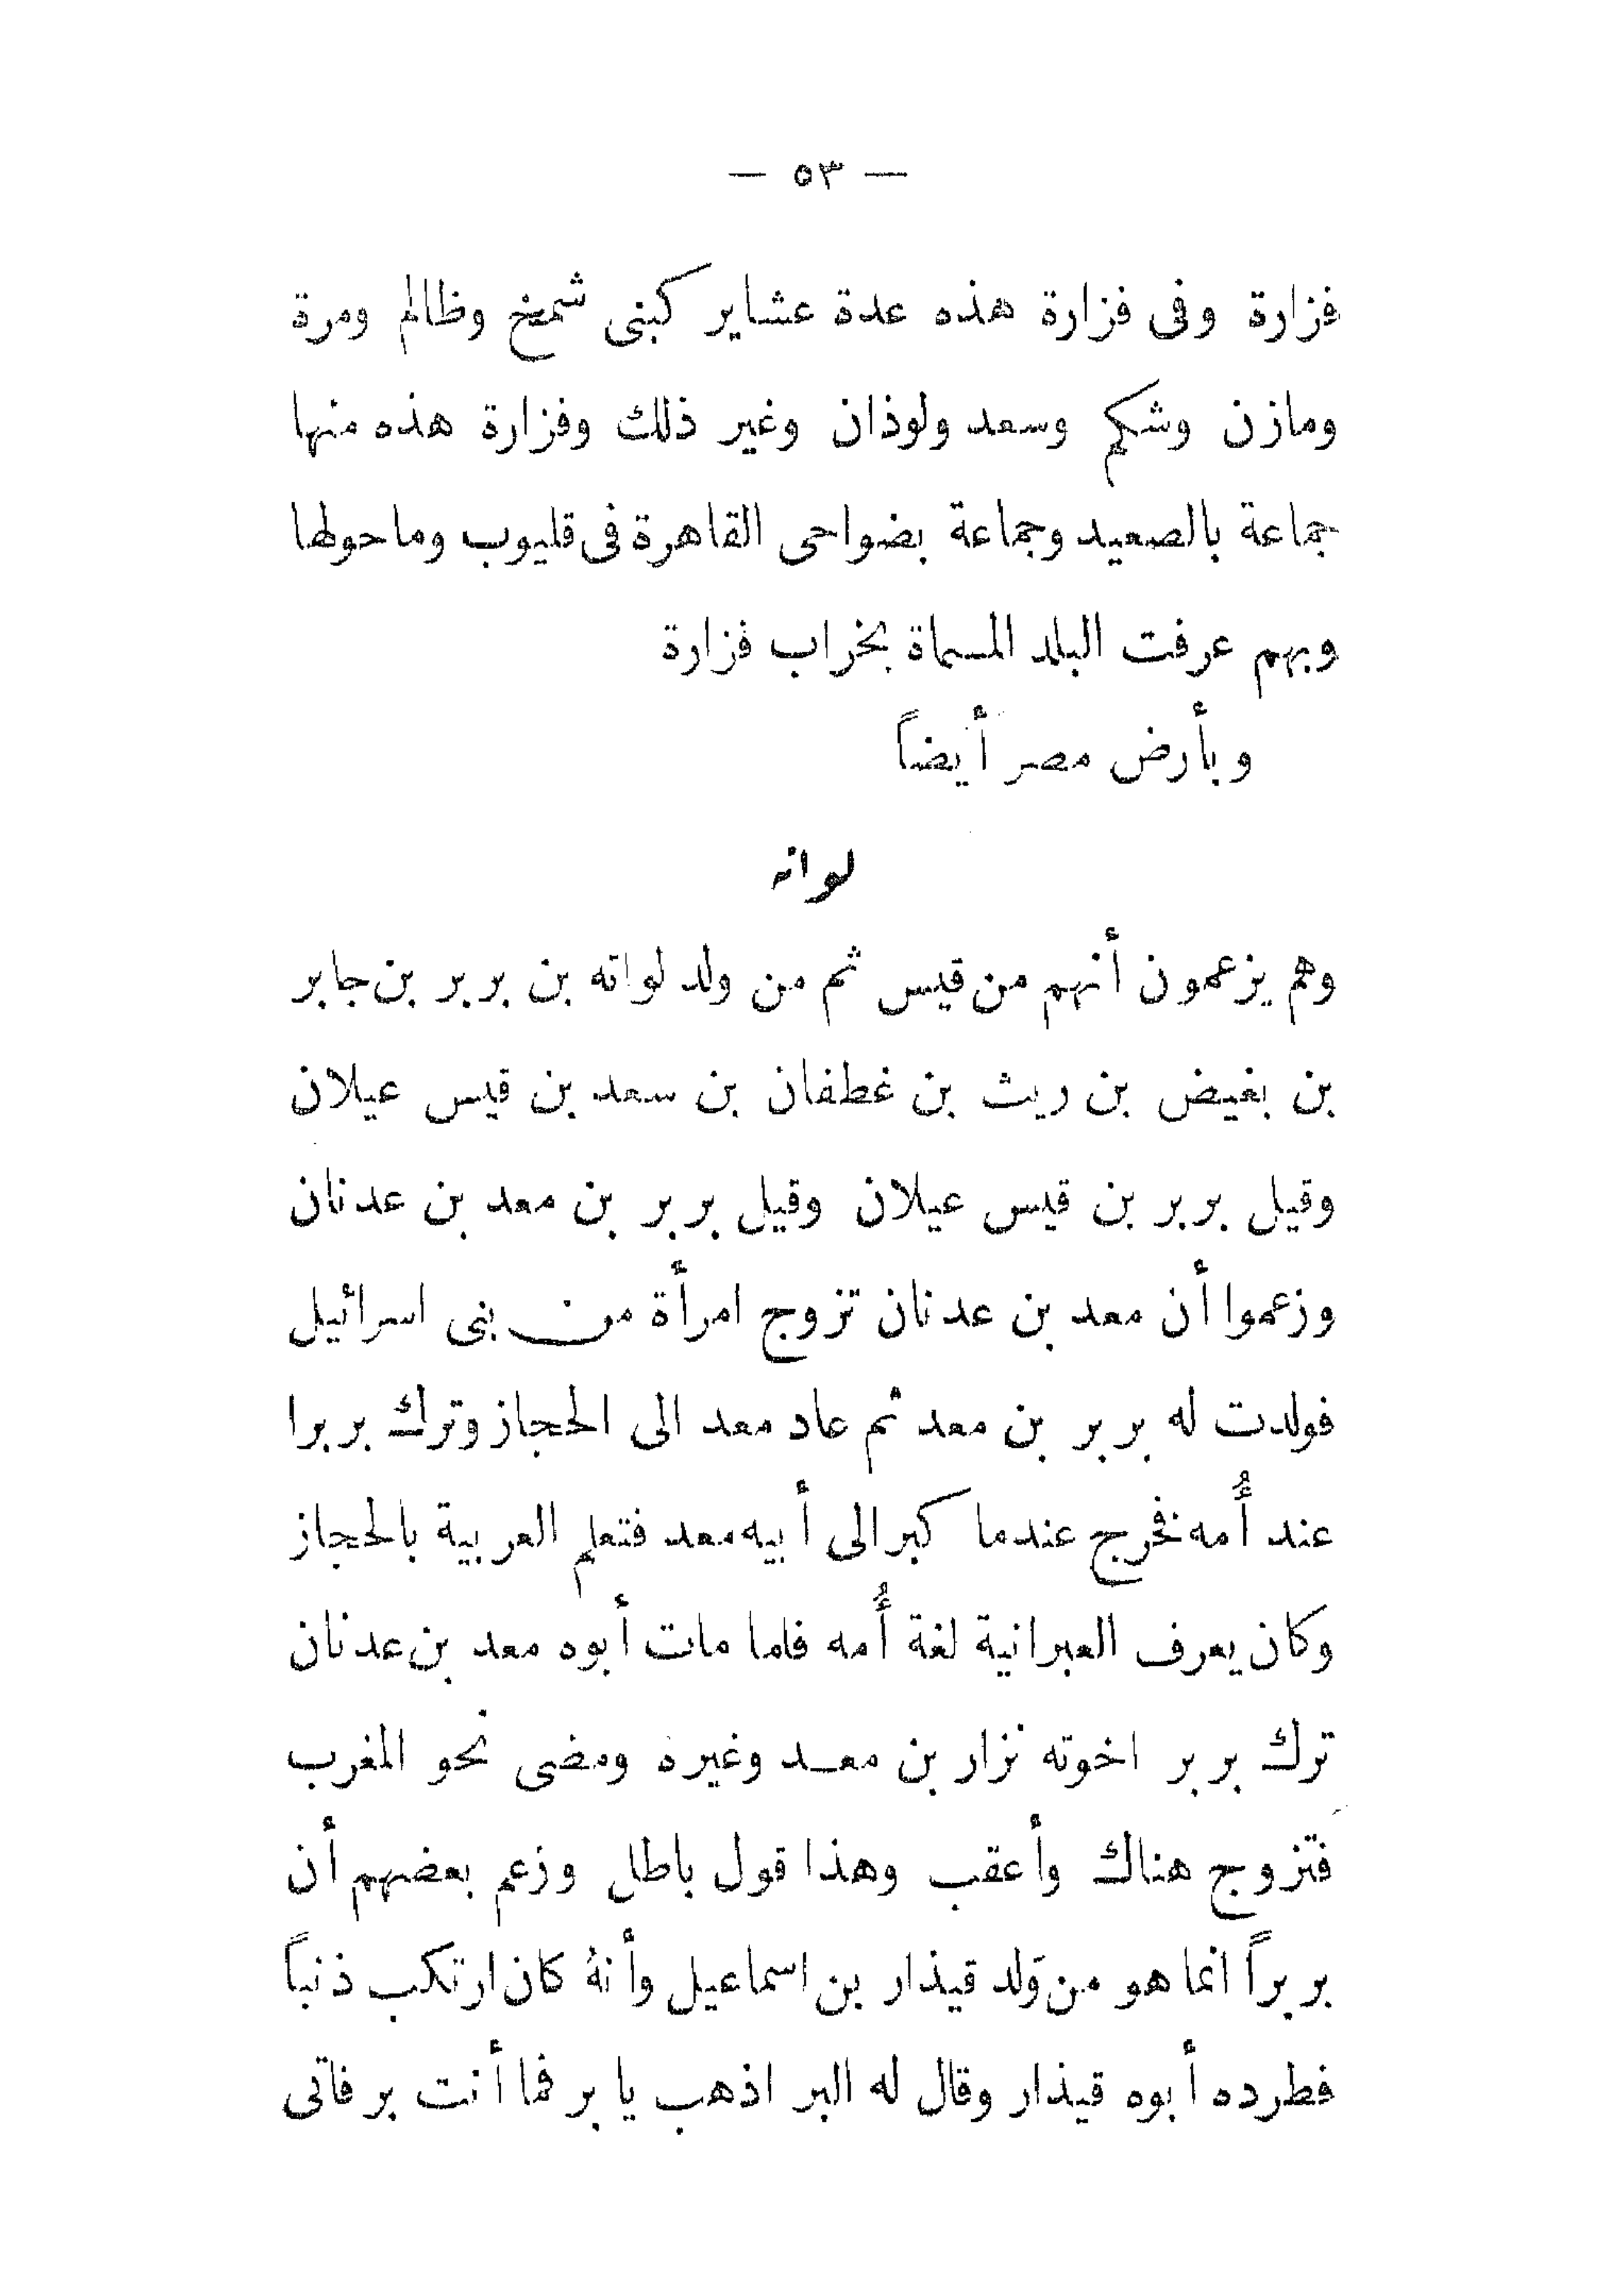 — ٥٣ —
فزارة وفى فزارة هذه عدة عشاير كبنى شمخ وظالم ومرة
ومازن وشكم وسعد ولوذان وغير ذلك وفزارة هذه منها
جماعة بالصعيد وجماعة بضواحى القاهرة فى قليوب وماحولها
وبهم عرفت البلد المسماة بخراب فزارة
وبأرض مصر أيضاً
لواته
وهم يزعمون أنهم من قيس ثم من ولد لواته بن بربر بن جابر
بن بغيض بن ريث بن غطفان بن سعد بن قيس عيلان
وقيل بربر بن قيس عيلان وقيل بربر بن معد بن عدنان
وزعموا أن معد بن عدنان تزوج امرأة من بنى اسرائيل
فولدت له بربر بن معد ثم عاد معد الى الحجاز وترك بربرا
عند أُمه فخرج عندما كبر الى أبيه معد فتعلم العربية بالحجاز
وكان يعرف العبرانية لغة أُمه فلما مات أبوه معد بن عدنان
ترك بربر اخوته نزار بن معد وغيره ومضى نحو المغرب
فتزوج هناك وأعقب وهذا قول باطل وزعم بعضهم أن
بربراً انما هو من وَلد قيذار بن اسماعيل وأنهُ كان ارتكب ذنباً
فطرده أبوه قيذار وقال له البر اذهب يا بر فما أنت بر فاتى